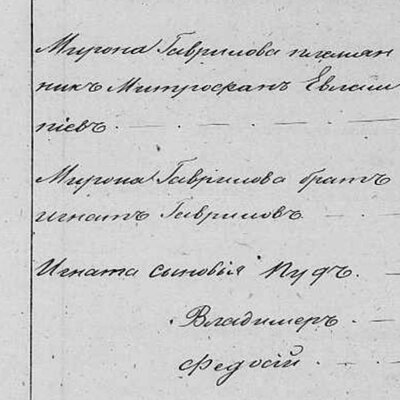 Мирона Гаврилова племян
никъ Митрофанъ Евлам
піевъ.
Мирона Гаврилова братъ
игнатъ Гавриловъ
Игната сыновья Пудъ.
Владимеръ.
Федосій